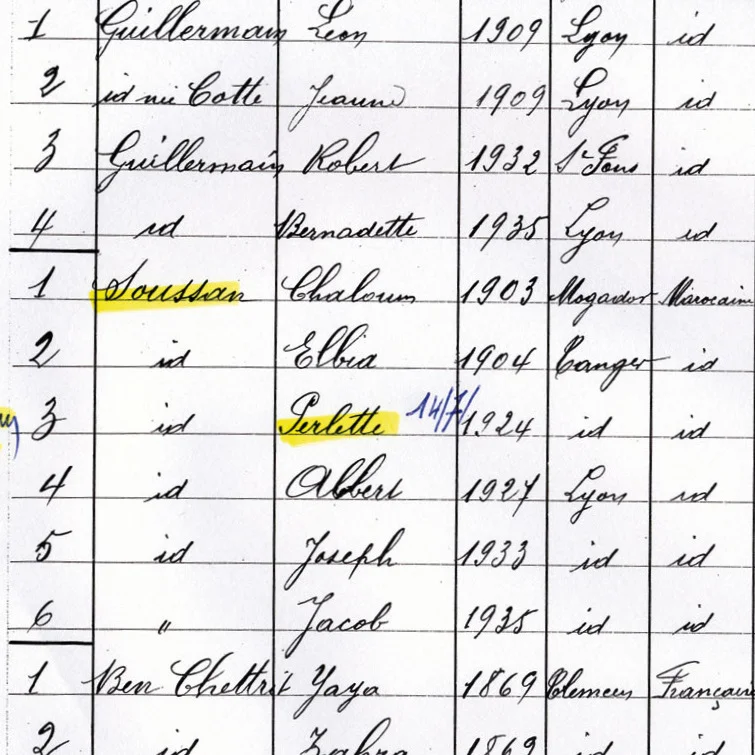 1 Guillermain Léon 1909 Lyon id
2 id née Cotte Jeanne 1909 Lyon id
3 Guillermain Robert 1932 St Fons id
4 id Bernadette 1935 Lyon id
1 Soussan Chaloum 1903 Mogador Marocaine
2 id Elbia 1904 Tanger id
3 id Perlette 14/7/ 1924 id id
4 id Albert 1927 Lyon id
5 id Joseph 1933 id id
6 " Jacob 1935 id id
1 Ben Chettrit Yaya 1869 Tlemcen Française
2 id Zahra 1869 id id